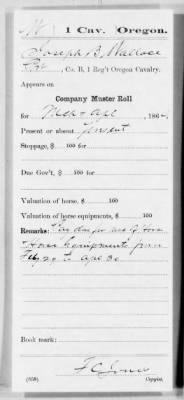 W | 1 Cav. | Oregon.
Joseph B. Wallace
Pvt, Co. B, 1 Reg't Oregon Cavalry.
Appears on
Company Muster Roll
for Mch & Apl, 1862.
Present or absent Present
Stoppage, $ 100 for
Due Gov't, $ 100 for
Valuation of horse, $ 100
Valuation of horse equipments, $ 100
Remarks: Pay due for use of horse
& Horse Equipments from
Feby 20 to Apl 30
Book mark:
F C Jones
(358) Copyist.